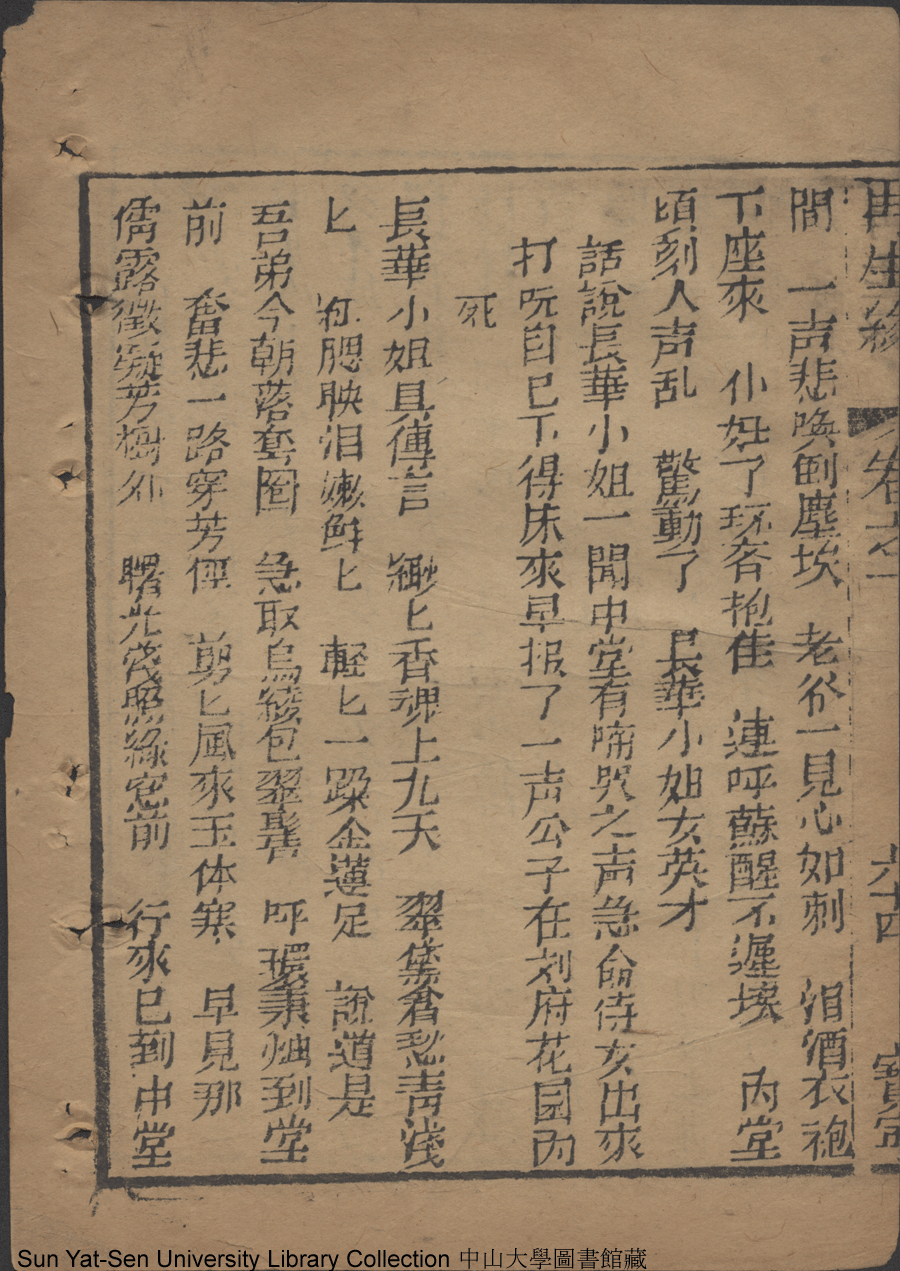 再生緣 卷之一 六十四 寶
間 一声悲喚倒塵埃 老爷一見心如刺 泪洒衣袍
下座來 仆姓了玩吝抱佳 連呼蘇醒不遲挨 內堂
頃刻人声乱 驚動了 長華小姐女英才
話說長華小姐一聞中堂有啼哭之声急命侍女出來
打听自已下得床來早报了一声公子在刘府花园內
死
長華小姐具傳言 緲匕香魂上九天 翠黛倉愁青淺
匕 紅腮映泪嫩鲜匕 輕匕一跺金蓮足 說道是
吾弟今朝落套圈 急取烏綾包翠髻 呼環秉烛到堂
前 奮悲一路穿芳徑 剪匕風來玉体寒 早見那
露微凝芳樹外 曙光淺照綠窓前 行來已到中堂
Sun Yat-Sen University Library Collection 中山大學圖書館藏